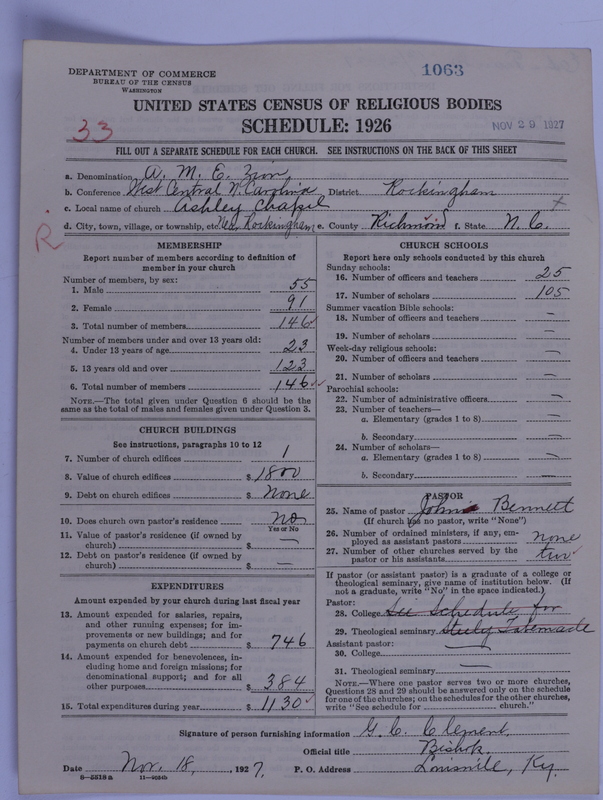 1063
DEPARTMENT OF COMMERCE
BUREAU OF THE CENSUS
WASHINGTON
UNITED STATES CENSUS OF RELIGIOUS BODIES
33
SCHEDULE: 1926
NOV 29 1927
FILL OUT A SEPARATE SCHEDULE FOR EACH CHURCH. SEE INSTRUCTIONS ON THE BACK OF THIS SHEET
a. Denomination A. M. E. Zion
b. Conference West Central N. Carolina District Rockingham
c. Local name of church Ashley Chapel x
d. City, town, village, or township, etc. Rockingham; e. County Richmond f. State N. C.
R
MEMBERSHIP
Report number of members according to definition of
member in your church
Number of members, by sex:
1. Male 55
2. Female 91
3. Total number of members 146
Number of members under and over 13 years old:
4. Under 13 years of age 23
5. 13 years old and over 123
6. Total number of members 146
NOTE.—The total given under Question 6 should be the
same as the total of males and females given under Question 3.
CHURCH BUILDINGS
See instructions, paragraphs 10 to 12
7. Number of church edifices 1
8. Value of church edifices $ 1800
9. Debt on church edifices $ None
10. Does church own pastor's residence no
Yes or No
11. Value of pastor's residence (if owned by
church) $ —
12. Debt on pastor's residence (if owned by
church) $ —
EXPENDITURES
Amount expended by your church during last fiscal year
13. Amount expended for salaries, repairs,
and other running expenses; for im-
provements or new buildings; and for
payments on church debt $ 746
14. Amount expended for benevolences, in-
cluding home and foreign missions; for
denominational support; and for all
other purposes $ 384
15. Total expenditures during year $ 1130
CHURCH SCHOOLS
Report here only schools conducted by this church
Sunday schools:
16. Number of officers and teachers 25
17. Number of scholars 105
Summer vacation Bible schools:
18. Number of officers and teachers —
19. Number of scholars —
Week-day religious schools:
20. Number of officers and teachers —
21. Number of scholars —
Parochial schools:
22. Number of administrative officers —
23. Number of teachers—
a. Elementary (grades 1 to 8) —
b. Secondary —
24. Number of scholars—
a. Elementary (grades 1 to 8) —
b. Secondary —
PASTOR
25. Name of pastor Bennett
(If church has no pastor, write "None")
26. Number of ordained ministers, if any, em-
ployed as assistant pastors none
27. Number of other churches served by the
pastor or his assistants two
If pastor (or assistant pastor) is a graduate of a college or
theological seminary, give name of institution below. (If
not a graduate, write "No" in the space indicated.)
Pastor:
28. College See Schedule for
29. Theological seminary Tabernacle
Assistant pastor:
30. College —
31. Theological seminary —
NOTE.—Where one pastor serves two or more churches,
Questions 28 and 29 should be answered only on the schedule
for one of the churches; on the schedules for the other churches,
write "See schedule for church."
Signature of person furnishing information G. C. Clement
Official title Bishop
Date Nov. 18, 1927. P. O. Address Louisville, Ky.
8-5518a